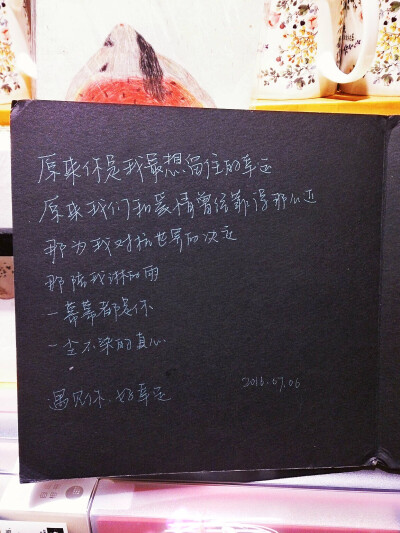 原来你是我最想留住的幸运
原来我们和爱情曾经靠得那么近
那为我对抗世界的决定
那陪我淋的雨
一幕幕都是你
一尘不染的真心
遇见你、好幸运
2016.07.06